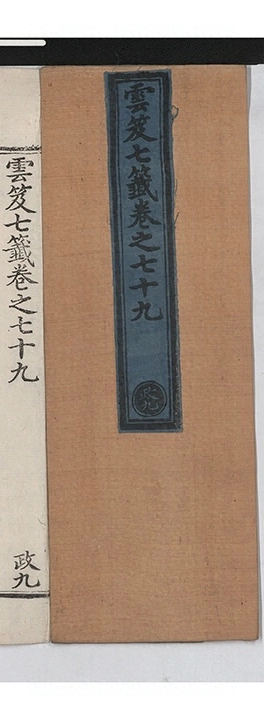 雲笈七籤卷之七十九
政九
雲笈七籤卷之七十九
政九